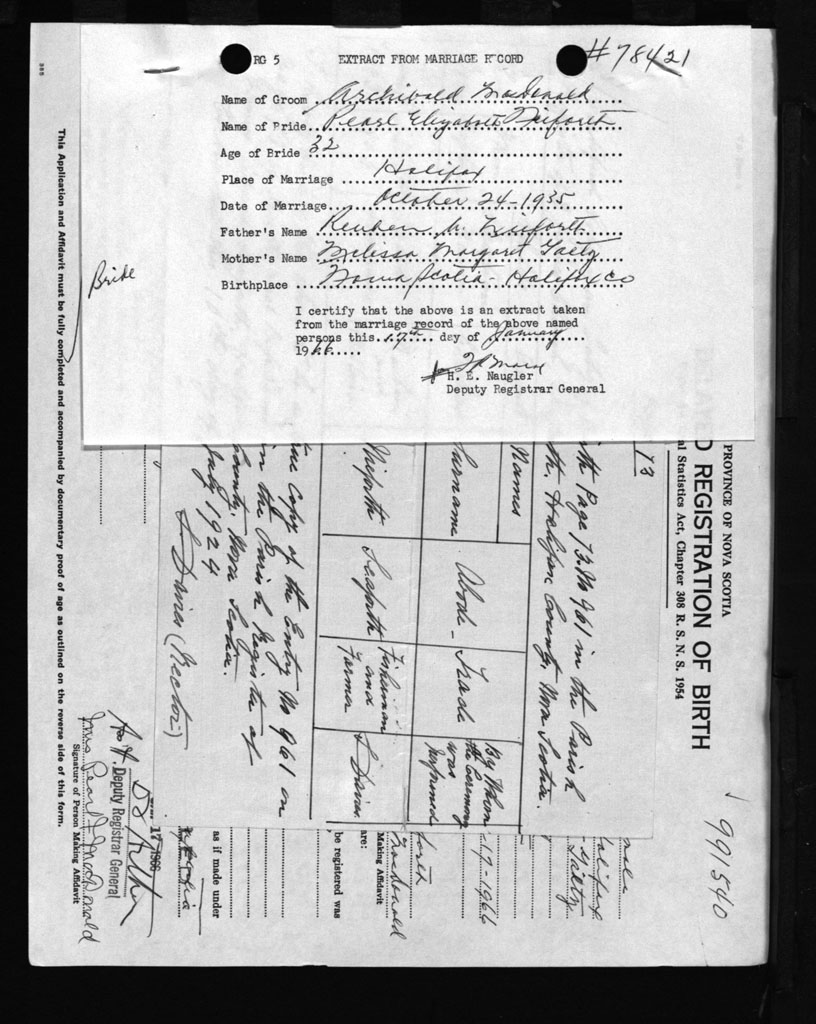 RG 5 EXTRACT FROM MARRIAGE RECORD #78421
Name of Groom Archibald MacDonald
Name of Bride Pearl Elizabeth Neiforth
Age of Bride 32
Place of Marriage Halifax
Date of Marriage October 24-1935
Father's Name Reuben Neiforth
Mother's Name Melissa Margaret Gaetz
Birthplace Nova Scotia - Halifax Co
I certify that the above is an extract taken
from the marriage record of the above named
persons this 17th day of January
1966
H. E. Naugler
Deputy Registrar General
Bride
PROVINCE OF NOVA SCOTIA
D REGISTRATION OF BIRTH
al Statistics Act, Chapter 308 R. S. N. S. 1954
991540
13
Page 13 No 961 in the Parish
Halifax County, Nova Scotia.
Names
Surname Abode Trade By Whom the Ceremony was performed
Neiforth Seaforth Fisherman and Farmer S Davies
Copy of the Entry No 961 in
in the Parish Register of
County, Nova Scotia.
July 1924
S Davies (Rector)
Halifax
Gaetz
17-1966
forth
MacDonald
Making Affidavit
are:
be registered was
as if made under
17 1966
Deputy Registrar General
Mrs Pearl E MacDonald
Signature of Person Making Affidavit
This Application and Affidavit must be fully completed and accompanied by documentary proof of age as outlined on the reverse side of this form.